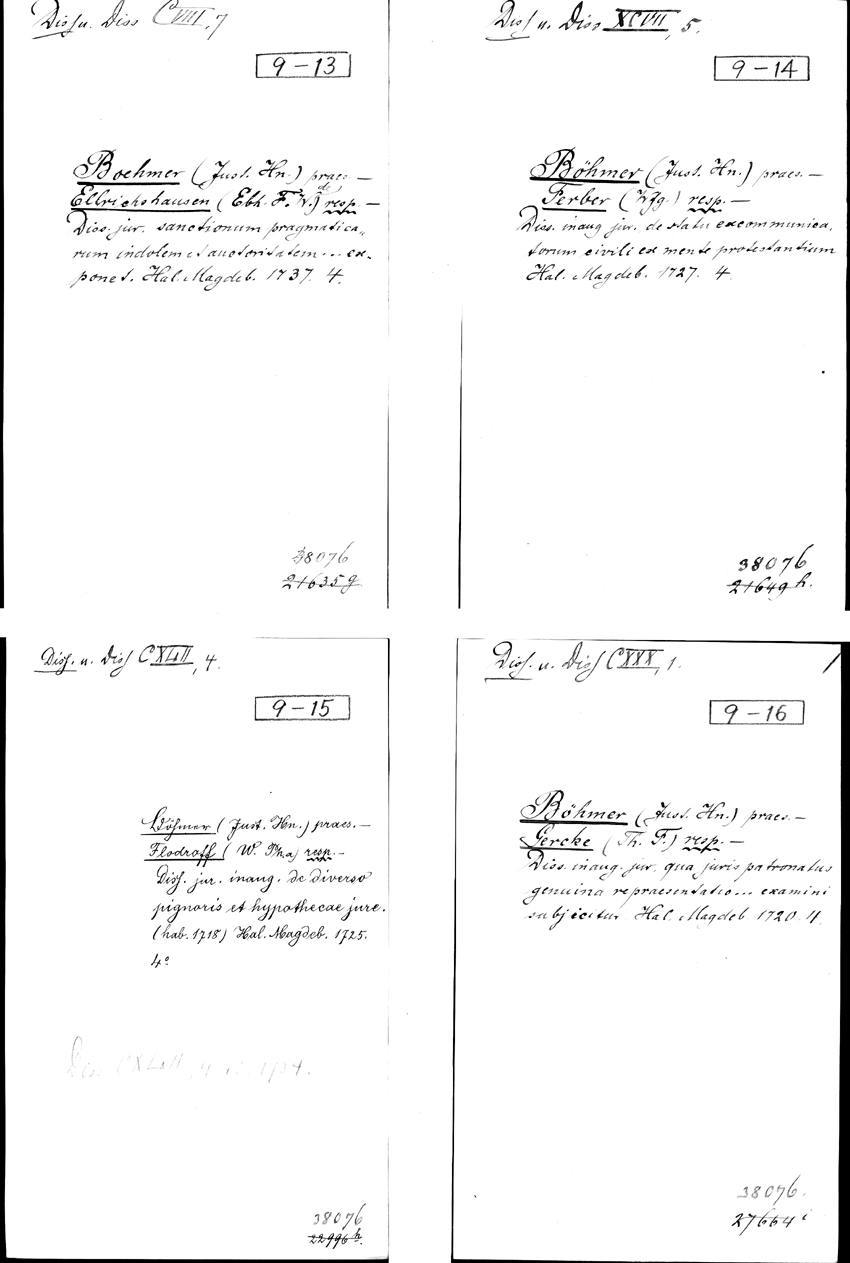 Diss. u. Diss CVIII, 7
9-13
Boehmer (Just. Hn.) praes. —
Ellrichshausen (Ebh. F. W. de) resp. —
Diss. jur. sanctionum pragmatica-
rum indolem et auctoritatem... ex-
ponet. Hal. Magdeb. 1737. 4.
38076
21635 g
Diss. u. Diss XCVII, 5.
9-14
Böhmer (Just. Hn.) praes. —
Ferber (Wfg.) resp. —
Diss. inaug. jur. de statu excommunica-
torum civili ex mente protestantium
Hal. Magdeb. 1727. 4.
38076
21649 h.
Diss. u. Diss CXLII, 4.
9-15
Böhmer (Just. Hn.) praes. —
Flodroff (W. ) resp. —
Diss. jur. inaug. de diverso
pignoris et hypothecae jure.
(hab. 1718) Hal. Magdeb. 1725.
4°
Diss. CXLII, 4
38076
22996 h.
Diss. u. Diss CXXX, 1.
9-16
Böhmer (Just. Hn.) praes. —
Gercke (Th. F.) resp. —
Diss. inaug. jur. qua juris patronatus
genuina repraesentatio... examini
subjicitur Hal. Magdeb 1720. 4.
38076.
27664 i